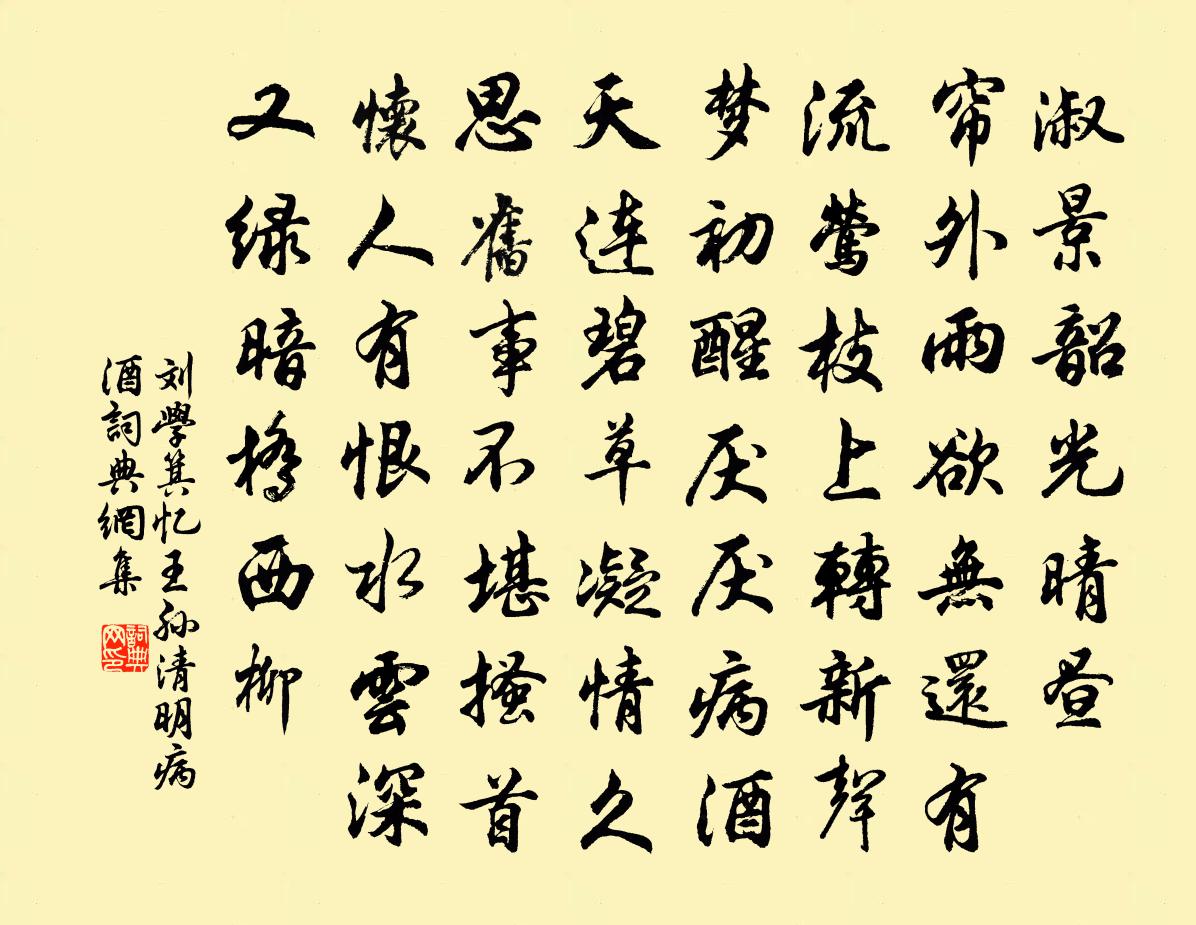 淑景韶光晴昼
帘外雨欲無還有
流莺枝上轉新聲
梦初醒厌厌病酒
天连碧草凝情久
思舊事不堪搔首
懷人有恨水雲深
又绿暗橋西柳
刘學箕忆王孙清明病
酒詞典網集
詞典网印